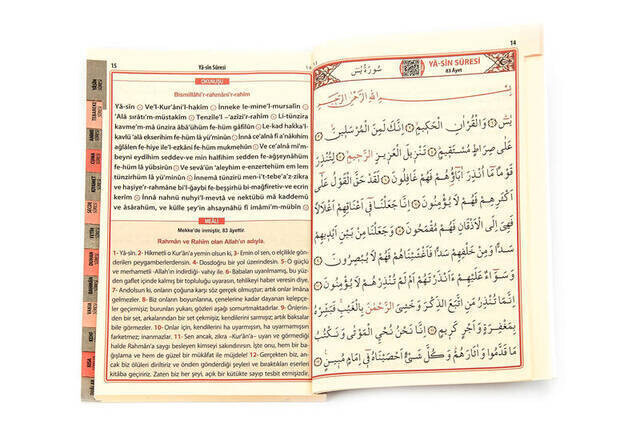 15
Yâ-sîn Sûresi
OKUNUŞU
Bismillâhi'r-rahmâni'r-rahîm
Yâ-sîn Ve'l-Kur'âni'l-hakîm İnneke le-mine'l-mursalîn
'Alâ sırâtı'm-müstakîm Tenzîle'l-'azîzi'r-rahîm Li-tünzira
kavme'm-mâ ünzira âbâühüm fe-hüm gâfilûn Le-kad hakka'l-
kavlü 'alâ ekserihim fe-hüm lâ yü'minûn İnnâ ce'alnâ fî a'nâkıhim
ağlâlen fe-hiye ile'l-ezkâni fe-hüm mukmehûn Ve ce'alnâ mi'm-
beyni eydîhim sedden-ve min halfihim sedden fe-ağşeynâhüm
fe-hüm lâ yübsirûn Ve sevâ'ün 'aleyhim e-enzertehüm em lem
tünzirhüm lâ yü'minûn İnnemâ tünziru meni-t-tebe'a'z-zikra
ve haşiye'r-rahmâne bi'l-ğaybi fe-beşşirhü bi-mağfiretiv-ve ecrin
kerîm İnnâ nahnü nuhyi'l-mevtâ ve nektübü mâ kaddemû
ve âsârahüm, ve külle şey'in ahsaynâhü fî imâmi'm-mübîn
MEÂLİ
Mekke'de inmiştir, 83 âyettir.
Rahmân ve Rahîm olan Allah'ın adıyla.
1- Yâ-sîn. 2- Hikmetli Kur'ân'a yemin olsun ki, 3- Emin ol sen, o elçilikle gönde-
rilen peygamberlerdensin. 4- Dosdoğru bir yol üzerindesin. 5- O güçlü
ve merhametli Allah'ın indirdiği vahiy ile. 6- Babaları uyarılmamış, bu yüz-
den gaflet içinde kalmış bir topluluğu uyarasın, tehlikeyi haber veresin diye.
7- Andolsun ki, onların çoğuna karşı söz gerçek olmuştur; artık onlar imâna
gelmezler. 8- Biz onların boyunlarına, çenelerine kadar dayanan kelepçe-
ler geçirmişiz; burunları yukarı, gözleri aşağı somurtmaktadırlar. 9- Önlerin-
den bir set, arkalarından bir set çekmişiz, kendilerini sarmışız; artık baksalar
bile görmezler. 10- Onlar için, kendilerini ha uyarmışsın, ha uyarmamışsın
farketmez; inanmazlar. 11- Sen ancak, zikra -Kur'ân'a- uyan ve görmediği
halde Rahmân'a saygı besleyen kimseyi sakındırırsın. İşte onu, hem bir ba-
ğışlama ve hem de güzel bir mükâfat ile müjdele! 12- Gerçekten biz, an-
cak biz ölüleri diriltiriz ve önden gönderdikleri şeyleri ve bıraktıkları eserleri
kitâba geçiririz. Zaten biz her şeyi, açık bir kütükte sayıp tesbit etmişizdir.
14
سُورَةُ يٰسٓ
YÂ-SÎN SÛRESİ
83 Âyet
بِسْمِ اللّٰهِ الرَّحْمٰنِ الرَّحِيمِ
يٰسٓ وَالْقُرْاٰنِ الْحَكِيمِ اِنَّكَ لَمِنَ الْمُرْسَلِينَ
عَلٰى صِرَاطٍ مُسْتَقِيمٍ تَنْزِيلَ الْعَزِيزِ الرَّحِيمِ لِتُنْذِرَ
قَوْمًا مَا اُنْذِرَ اٰبَاؤُهُمْ فَهُمْ غَافِلُونَ لَقَدْ حَقَّ الْقَوْلُ عَلٰى
اَكْثَرِهِمْ فَهُمْ لَا يُؤْمِنُونَ اِنَّا جَعَلْنَا فِى اَعْنَاقِهِمْ اَغْلَالًا
فَهِىَ اِلَى الْاَذْقَانِ فَهُمْ مُقْمَحُونَ وَجَعَلْنَا مِنْ بَيْنِ اَيْدِيهِمْ
سَدًّا وَمِنْ خَلْفِهِمْ سَدًّا فَاَغْشَيْنَاهُمْ فَهُمْ لَا يُبْصِرُونَ
وَسَوَٓاءٌ عَلَيْهِمْ ءَاَنْذَرْتَهُمْ اَمْ لَمْ تُنْذِرْهُمْ لَا يُؤْمِنُونَ
اِنَّمَا تُنْذِرُ مَنِ اتَّبَعَ الذِّكْرَ وَخَشِىَ الرَّحْمٰنَ بِالْغَيْبِ فَبَشِّرْهُ
بِمَغْفِرَةٍ وَاَجْرٍ كَرِيمٍ اِنَّا نَحْنُ نُحْيِ الْمَوْتٰى وَنَكْتُبُ
مَا قَدَّمُوا وَاٰثَارَهُمْ وَكُلَّ شَىْءٍ اَحْصَيْنَاهُ فِٓى اِمَامٍ مُبِينٍ